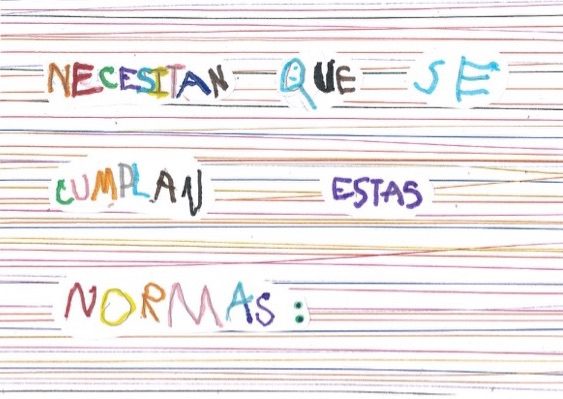 NECESITAN QUE SE
CUMPLAN ESTAS
NORMAS: